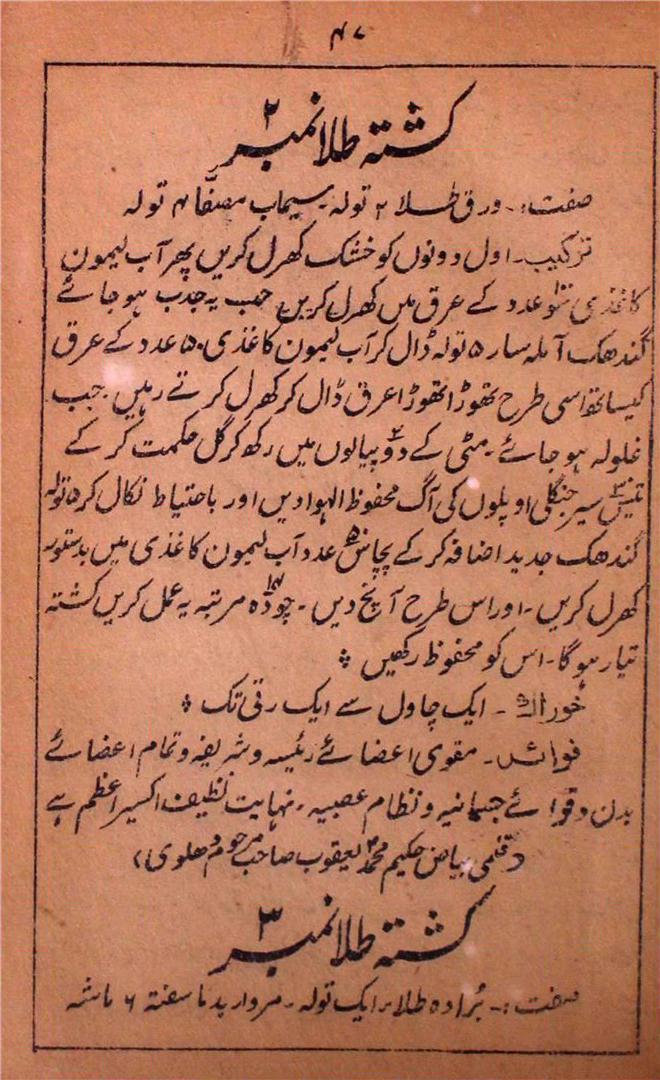 ۴۷
کشتہ طلا نمبر ۲
صفت:۔ ورق طلا ۲ تولہ۔ سیماب مصفّا ۴ تولہ
ترکیب۔ اول دونوں کو خشک کھرل کریں پھر آب لیمون
کاغذی سو عدد کے عرق میں کھرل کریں۔ جب یہ جذب ہو جائے
گندھک آملہ سار ۵ تولہ ڈال کر آب لیمون کاغذی ۵۰ عدد کے عرق
کیساتھ اسی طرح تھوڑا تھوڑا عرق ڈال کر کھرل کرتے رہیں۔ جب
غلولہ ہو جائے۔ مٹی کے دو پیالوں میں رکھ کر گل حکمت کر کے
سیر جنگلی اوپلوں کی آگ محفوظ الہوا دیں اور باحتیاط نکال کر ۵ تولہ
گندھک جدید اضافہ کر کے پچاس عدد آب لیمون کاغذی میں بدستور
کھرل کریں۔ اور اس طرح آنچ دیں۔ چودہ مرتبہ یہ عمل کریں کشتہ
تیار ہو گا۔ اس کو محفوظ رکھیں
خوراک ۔ ایک چاول سے ایک رتی تک
فوائد۔ مقوی اعضائے رئیسہ و شریفہ و تمام اعضائے
بدن و قوائے جسمانیہ و نظام عصبیہ۔ نہایت لطیف اکسیر اعظم ہے
(قلمی بیاض حکیم محمد یعقوب صاحب مرحوم دھلوی)
کشتہ طلا نمبر ۳
صفت:۔ بُرادہ طلا۔ ایک تولہ۔ مروارید ناسفتہ ۶ ماشہ